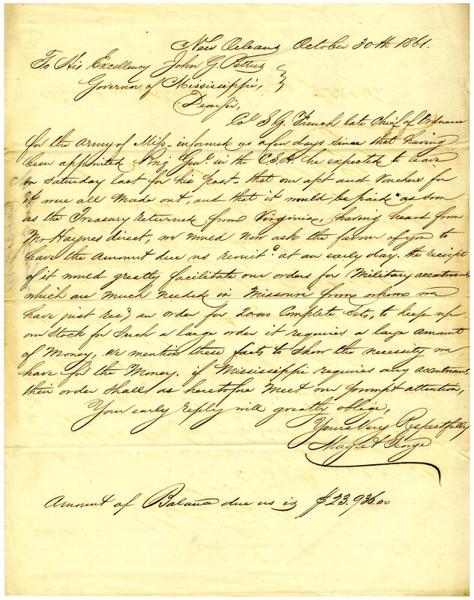 New Orleans October 30th 1861.
To His Excellency John J. Pettus
Governor of Mississippi,
Dear Sir,
Col S. G. French late Chief of Ordnance
for the Army of Miss. informed us a few days since that having
been appointed Brig Genl in the C.S.A. he expected to leave
on Saturday last for his post. that our apt and Vouchers for
it were all Made out and that it would be paid as soon
as the Treasury returned from Virginia, having heard from
Mr Haynes direct, we would now ask the favour of you to
have the Amount due us remitd at an early day. the receipt
of it would greatly facilitate our orders for Military accoutrements
which are Much needed in Missouri from whom we
have just recd an order for 20000 Complete Sets, to keep up
our Stock for Such a large order it requires a large amount
of Money, we mention these facts to Show the necessity we
have for the Money. if Mississippi requires any accoutrements
their order Shall as heretofore Meet our prompt attention,
Your early reply will greatly oblige,
Yours Very Respectfully
Magee & George
Amount of Balance due us is $23.936.00